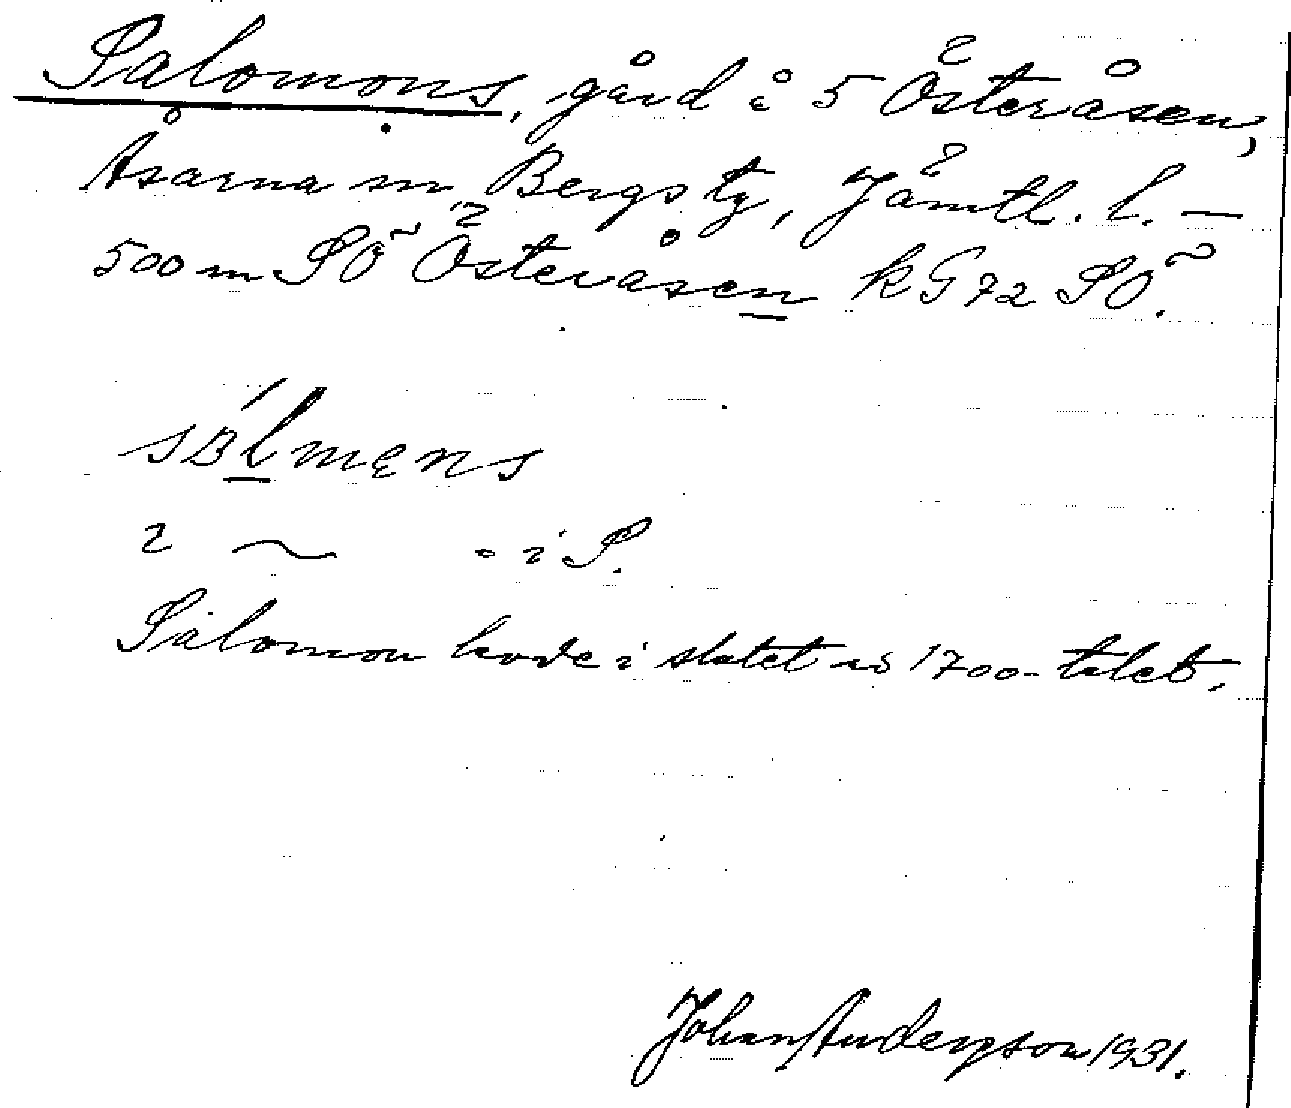 Salomons, gård å 5 Österåsen,
Åsarna sn, Bergs tg, Jämtl. l. —
500 m SÖ Österåsen kG72 SÖ.
i S.
Salomon levde i slutet av 1700-talet.
Johan Anderzson 1931.